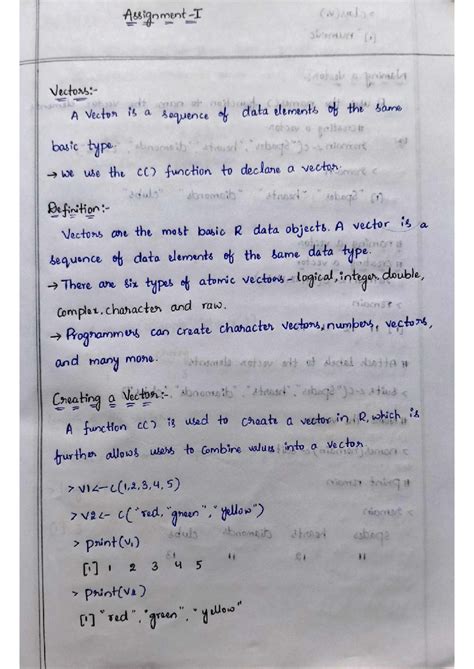 Assignment-I
Vectors:-
A Vector is a sequence of data elements of the same
basic type.
→ we use the C() function to declare a vector.
Definition:-
Vectors are the most basic R data objects. A vector is a
sequence of data elements of the same data type.
→ There are six types of atomic vectors - logical, integer, double,
complex, character and raw.
→ Programmers can create character vectors, numbers, vectors,
and many more.
Creating a Vector:-
A function C() is used to create a vector in R, which is
further allows users to combine values into a vector.
> V1 <- c(1,2,3,4,5)
> V2 <- c("red, "green", "yellow")
> print(V1)
[1] 1 2 3 4 5
> print(V2)
[1] "red", "green", "yellow"